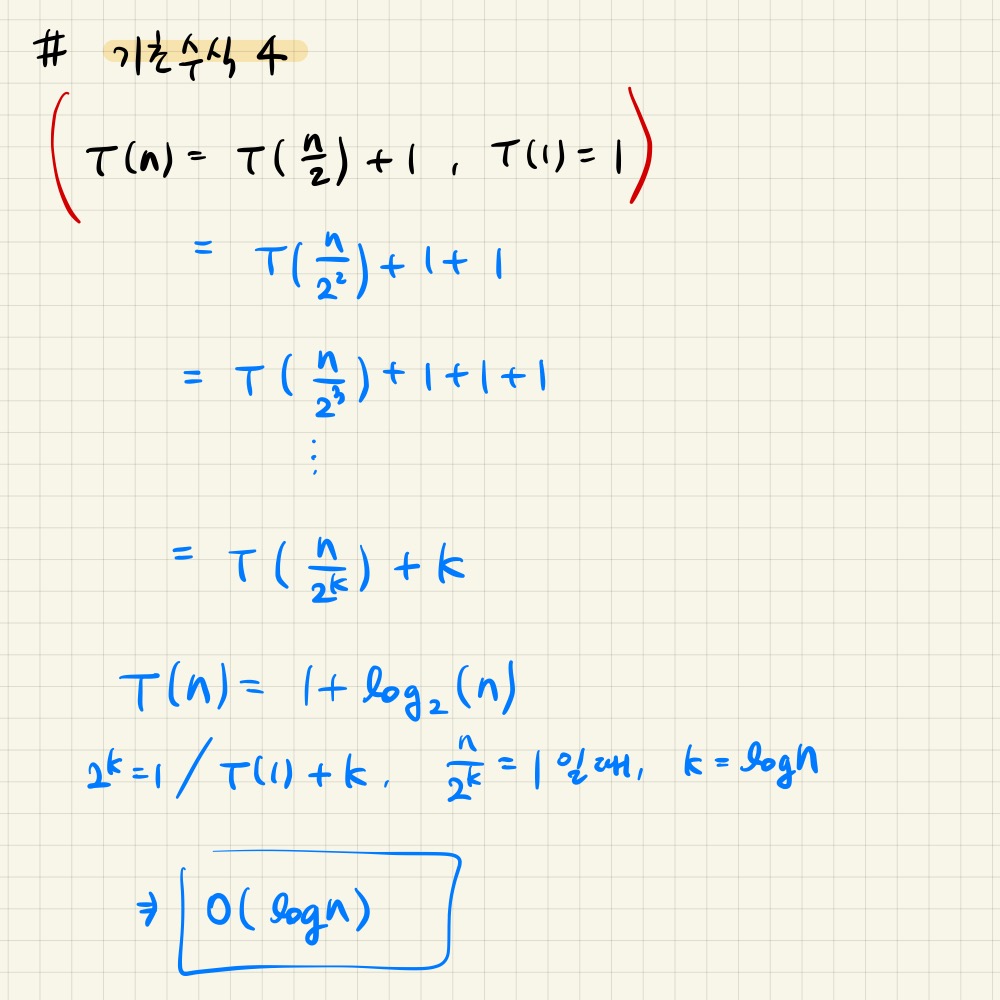 # 기초수식 4
( T(n) = T(n/2) + 1 , T(1) = 1 )
= T(n/2²) + 1 + 1
= T(n/2³) + 1 + 1 + 1
⋮
= T(n/2ᵏ) + k
T(n) = 1 + log₂(n)
2ᵏ = 1 / T(1) + k , n/2ᵏ = 1 일때, k = logn
⇒ O( logn )